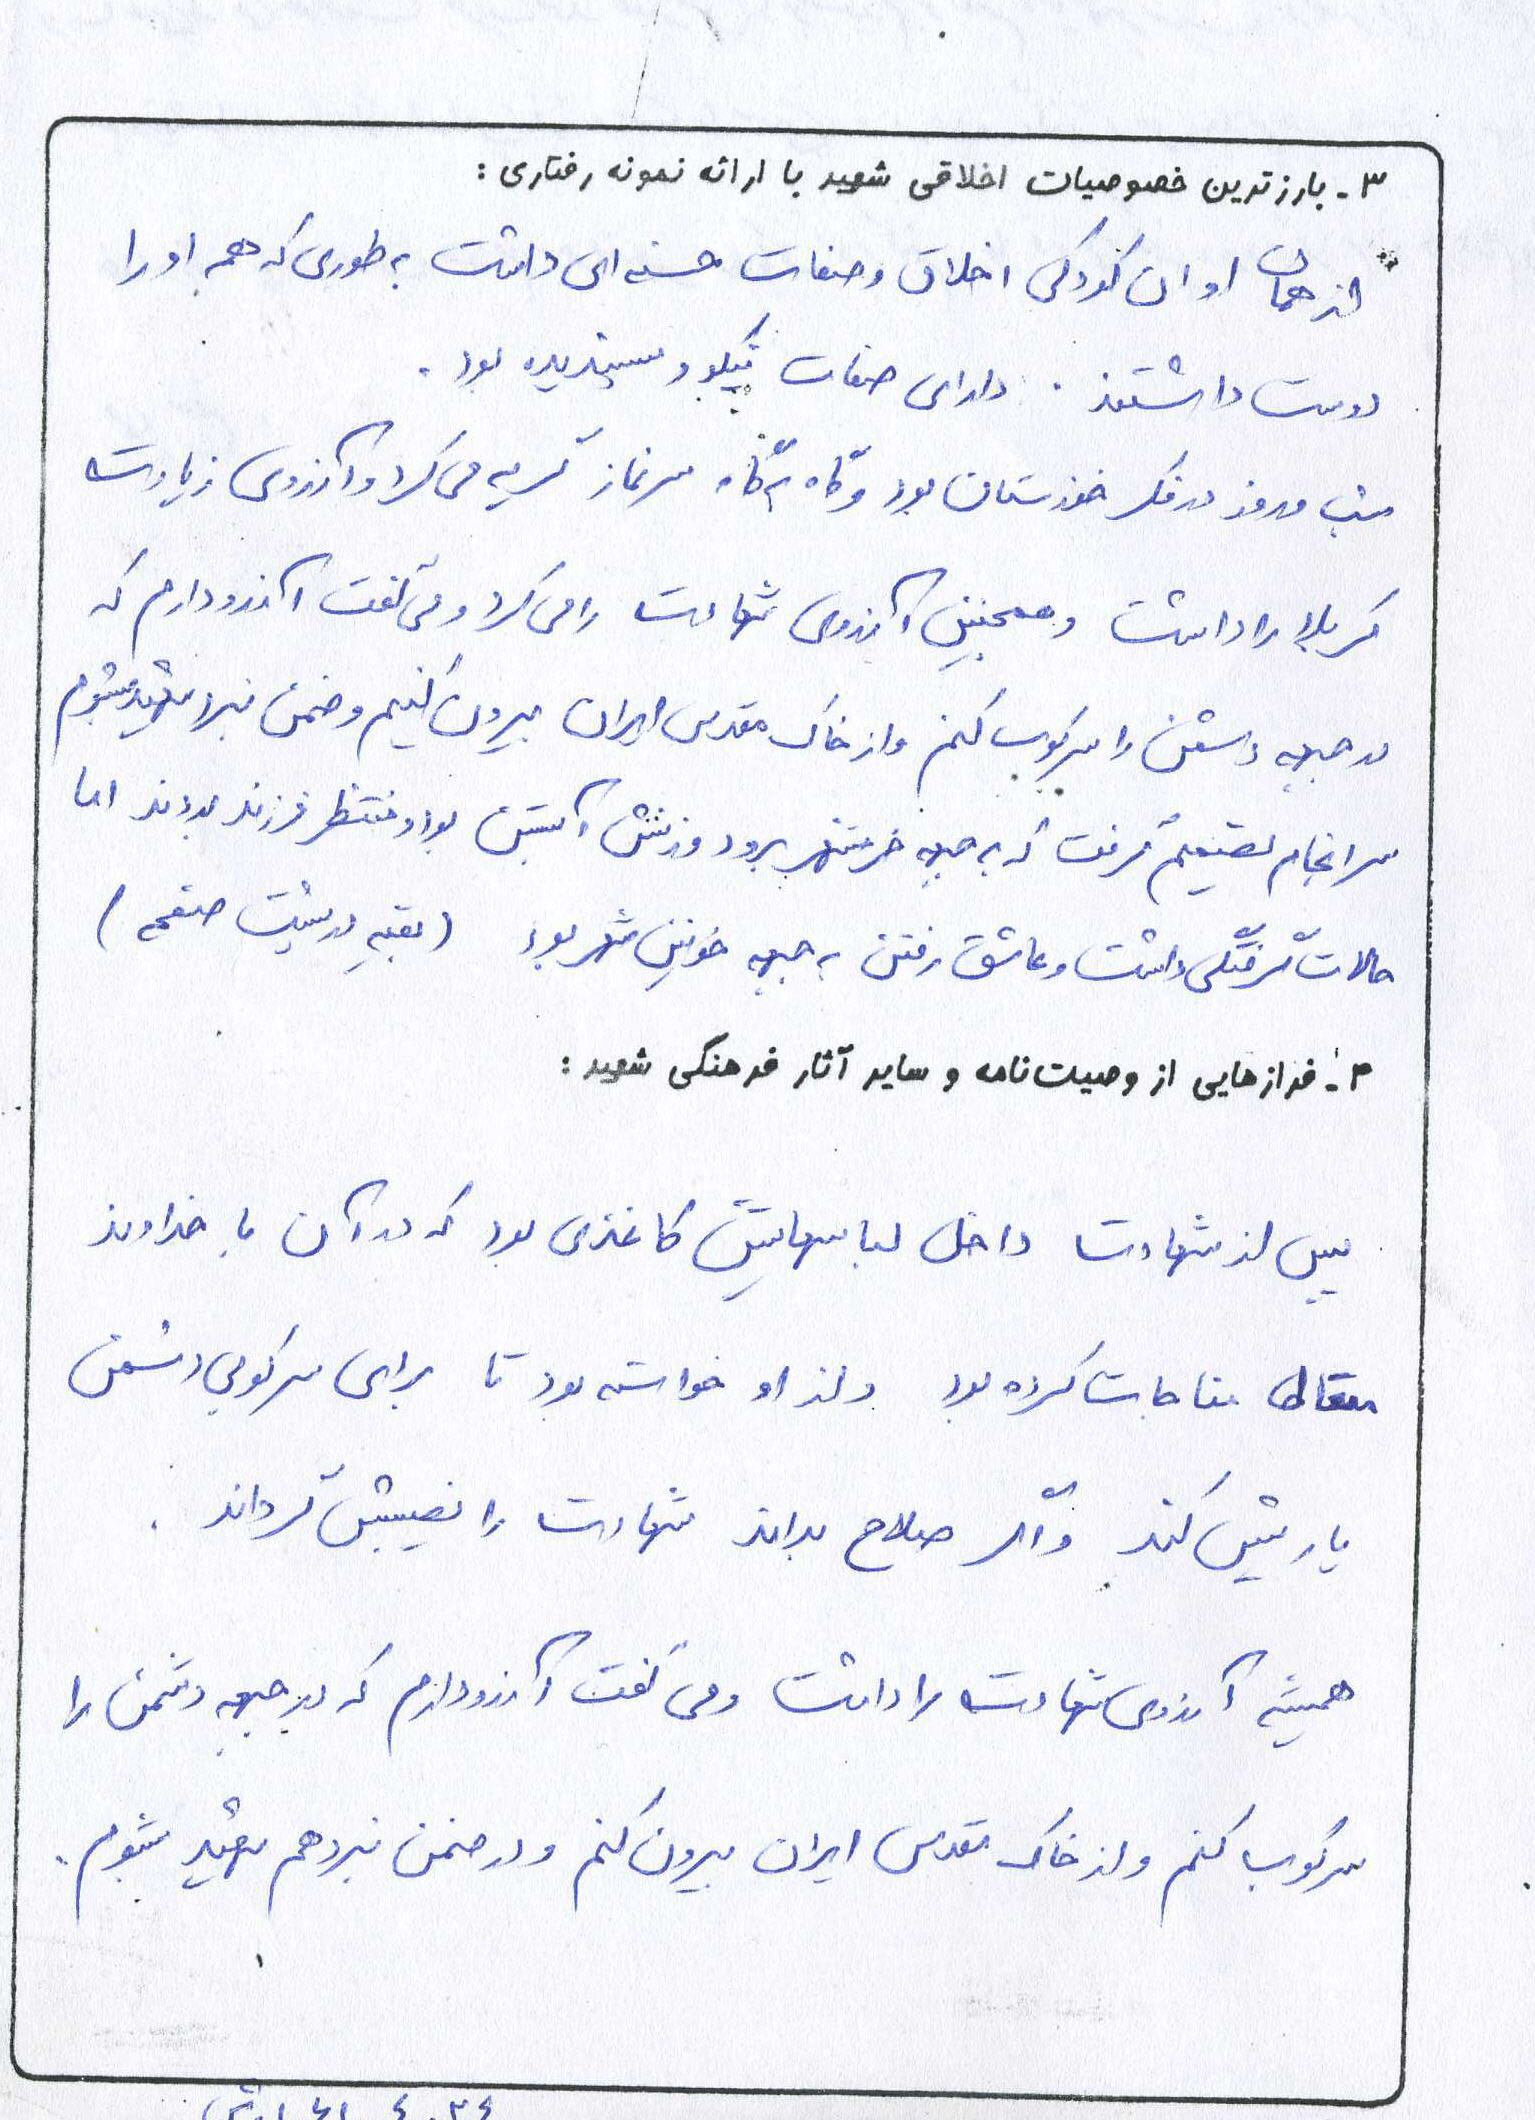 ۳ـ بارزترین خصوصیات اخلاقی شهید با ارائه نمونه رفتاری :
از همان اوان کودکی اخلاق و صفات حسنه ای داشت به طوری که همه او را
دوست داشتند . دارای صفات نیکو و پسندیده بود .
شب و روز در فکر خوزستان بود و گاه گاه سر نماز گریه می کرد و آرزوی زیارت
کربلا را داشت و همچنین آرزوی شهادت را می کرد و می گفت آرزو دارم که
در جبهه دشمن را سرکوب کنم و از خاک مقدس ایران بیرون کنیم و ضمن نبرد شهید شوم
سرانجام تصمیم گرفت که به جبهه خرمشهر برود و زنش آبستن بود و منتظر فرزند بودند اما
حالات گرفتگی داشت و عاشق رفتن به جبهه خونین شهر بود (بقیه در پشت صفحه )
۴ـ فرازهایی از وصیت‌نامه و سایر آثار فرهنگی شهید :
پس از شهادت داخل لباسهایش کاغذی بود که در آن با خداوند
متعال مناجات کرده بود و از او خواسته بود تا برای سرکوبی دشمن
یاریش کند و اگر صلاح بداند شهادت را نصیبش گرداند .
همیشه آرزوی شهادت را داشت و می گفت آرزو دارم که در جبهه دشمن را
سرکوب کنم و از خاک مقدس ایران بیرون کنم و در ضمن نبرد هم شهید شوم .